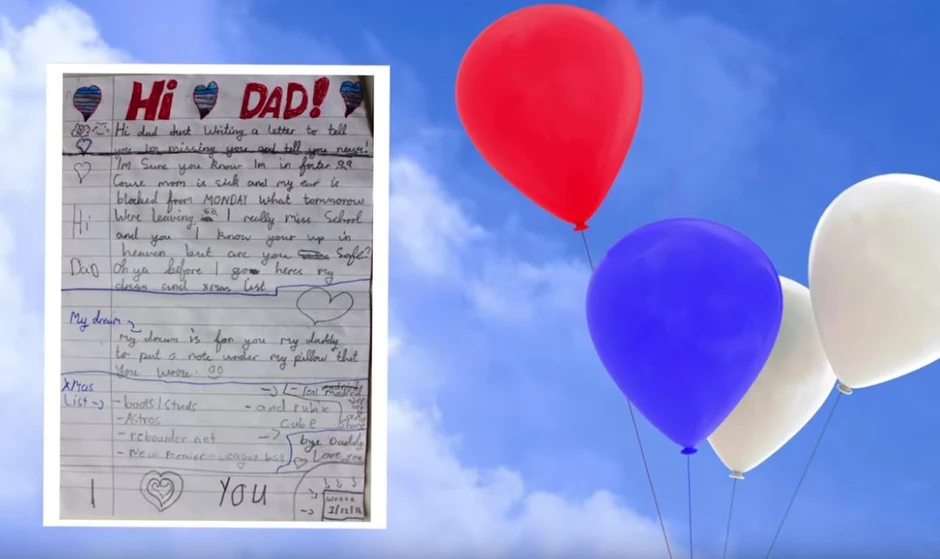 Hi DAD!
Hi dad dust Writing a letter to tell
you Im missing you and tell you news!
I'm Sure you know Im in
Cause mom is sick and my ear is
blocked from MONDAY What tommorow
Hi
Were leaving I really miss School
and you I know your up in
heaven but are you Safe?
Dad
Oh ya before I go heres my
dream and xmas list
My dream
My dream is for you my daddy
to put a note under my pillow that
you wrote
Xmas
List
- boots/studs
- Astros
- rebounder net
- New Premier-League ball
- and rubix
cube
bye Daddy
Love you
I YOU
wrote
1/12/16